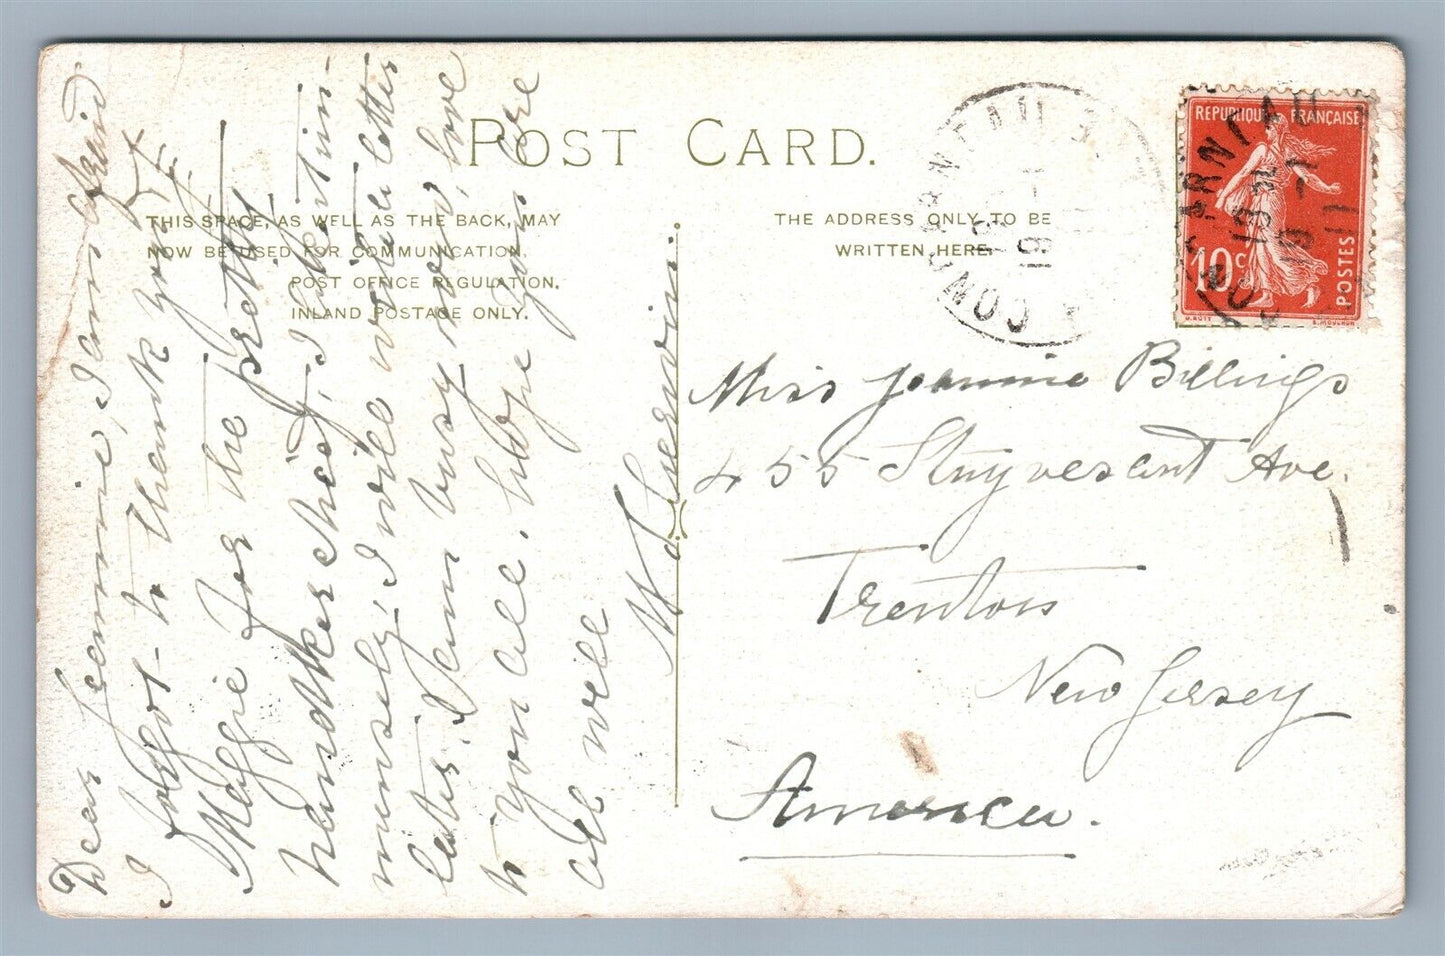 POST CARD.
THIS SPACE, AS WELL AS THE BACK, MAY
NOW BE USED FOR COMMUNICATION.
POST OFFICE REGULATION.
INLAND POSTAGE ONLY.
THE ADDRESS ONLY TO BE
WRITTEN HERE.
Dear Jeannine, I am afraid
I forgot to thank you &
Maggie for the pretty
handkerchief, I do
immensely, I will write letter
later. I am busy now, love
to you all. hope you are
all well
Miss Jeannine Billings
455 Stuyvesant Ave.
Trenton
New Jersey
America.
REPUBLIQUE FRANÇAISE
10c
POSTES
CONCARNEAU
CONCARNEAU